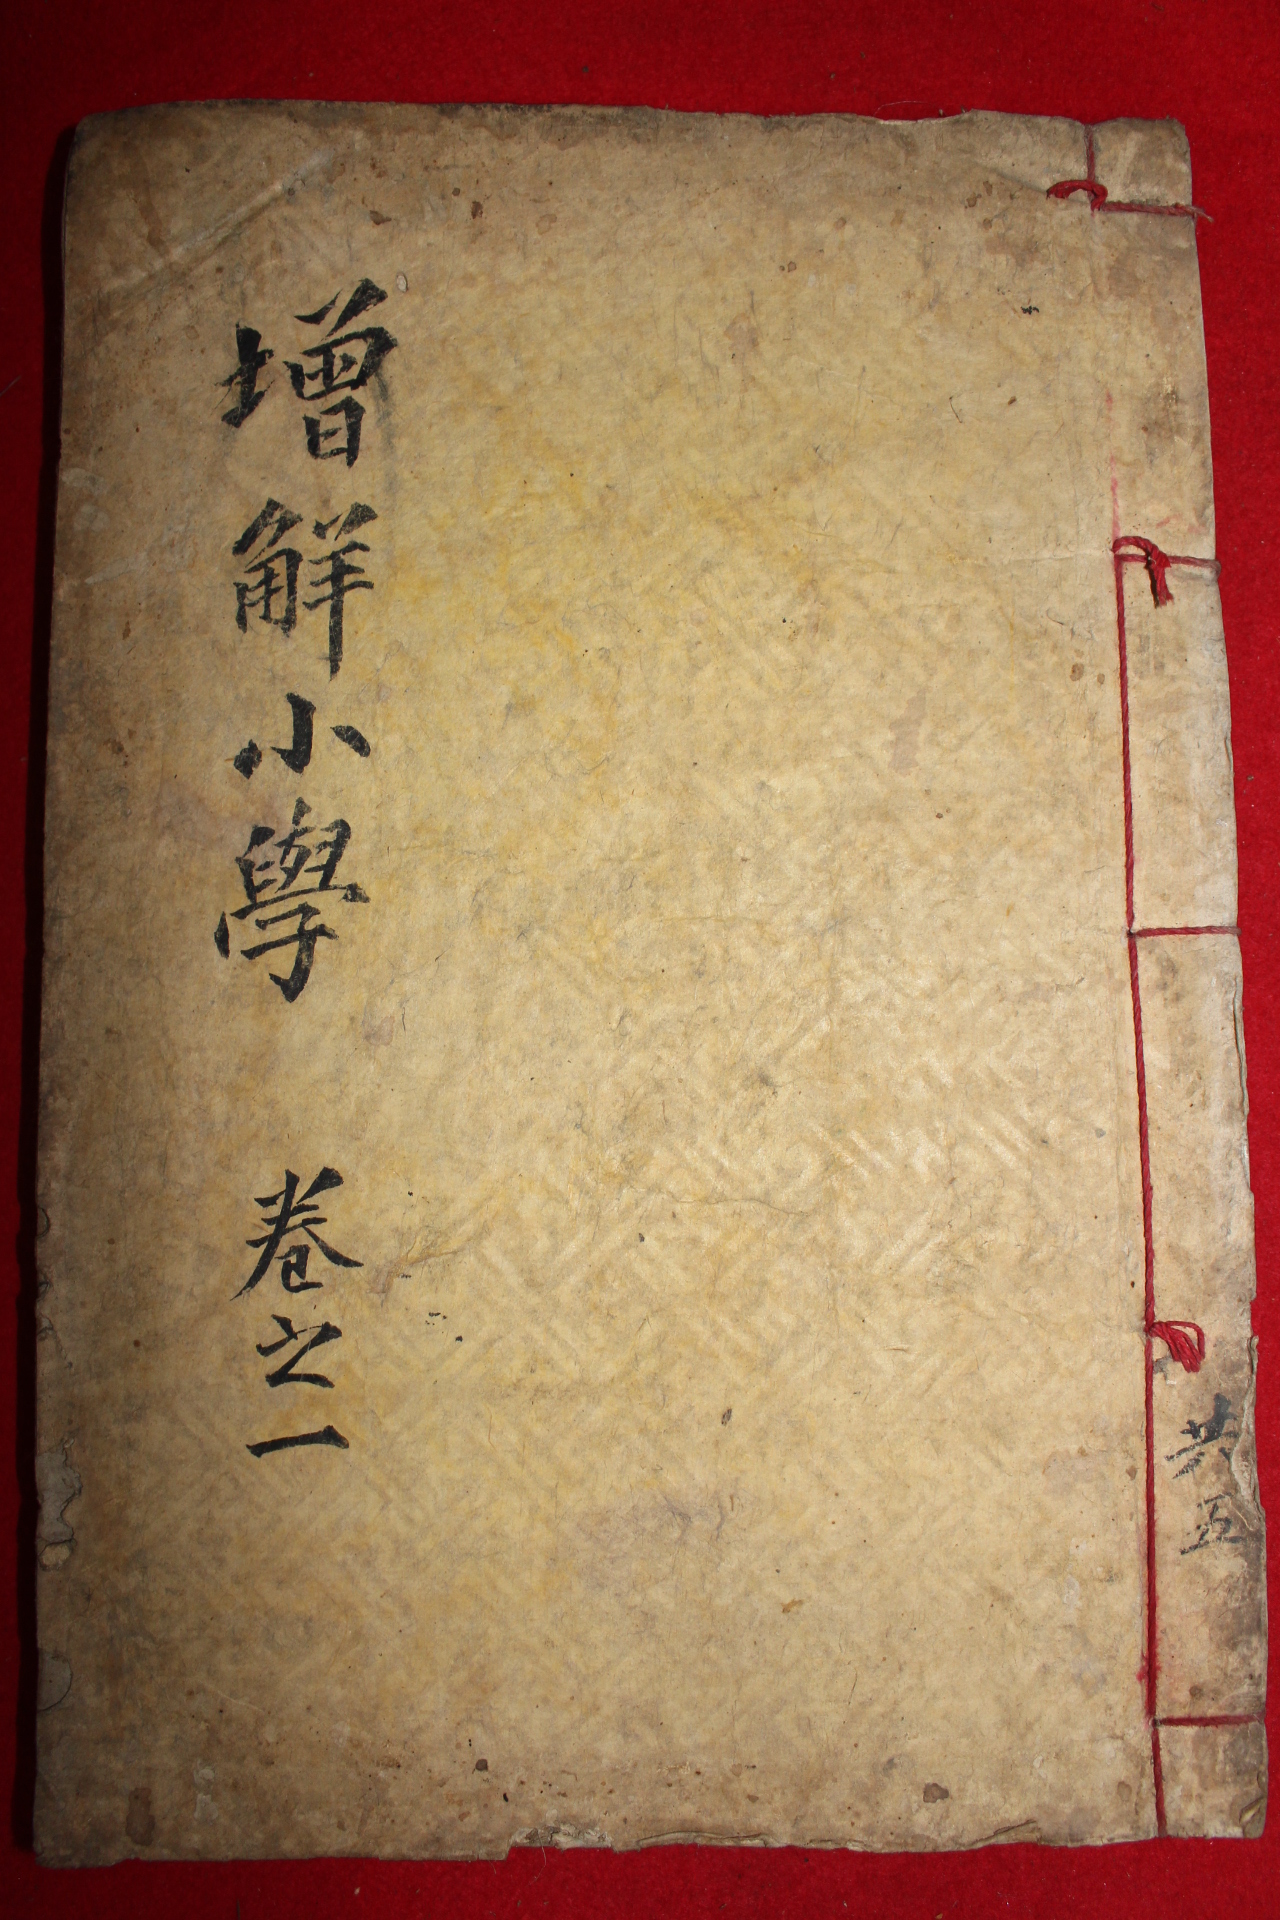 共五
增觧小學 卷之一